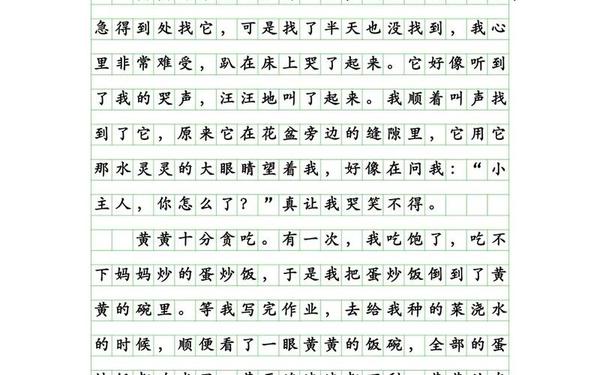 急得到处找它，可是找了半天也没找到，我心
里非常难受，趴在床上哭了起来。它好像听到
了我的哭声，汪汪地叫了起来。我顺着叫声找
到了它，原来它在花盆旁边的缝隙里，它用它
那水灵灵的大眼睛望着我，好像在问我：“小
主人，你怎么了？”真让我哭笑不得。
黄黄十分贪吃。有一次，我吃饱了，吃不
下妈妈炒的蛋炒饭，于是我把蛋炒饭倒到了黄
黄的碗里。等我写完作业，去给我种的菜浇水
的时候，顺便看了一眼黄黄的饭碗，全部的蛋